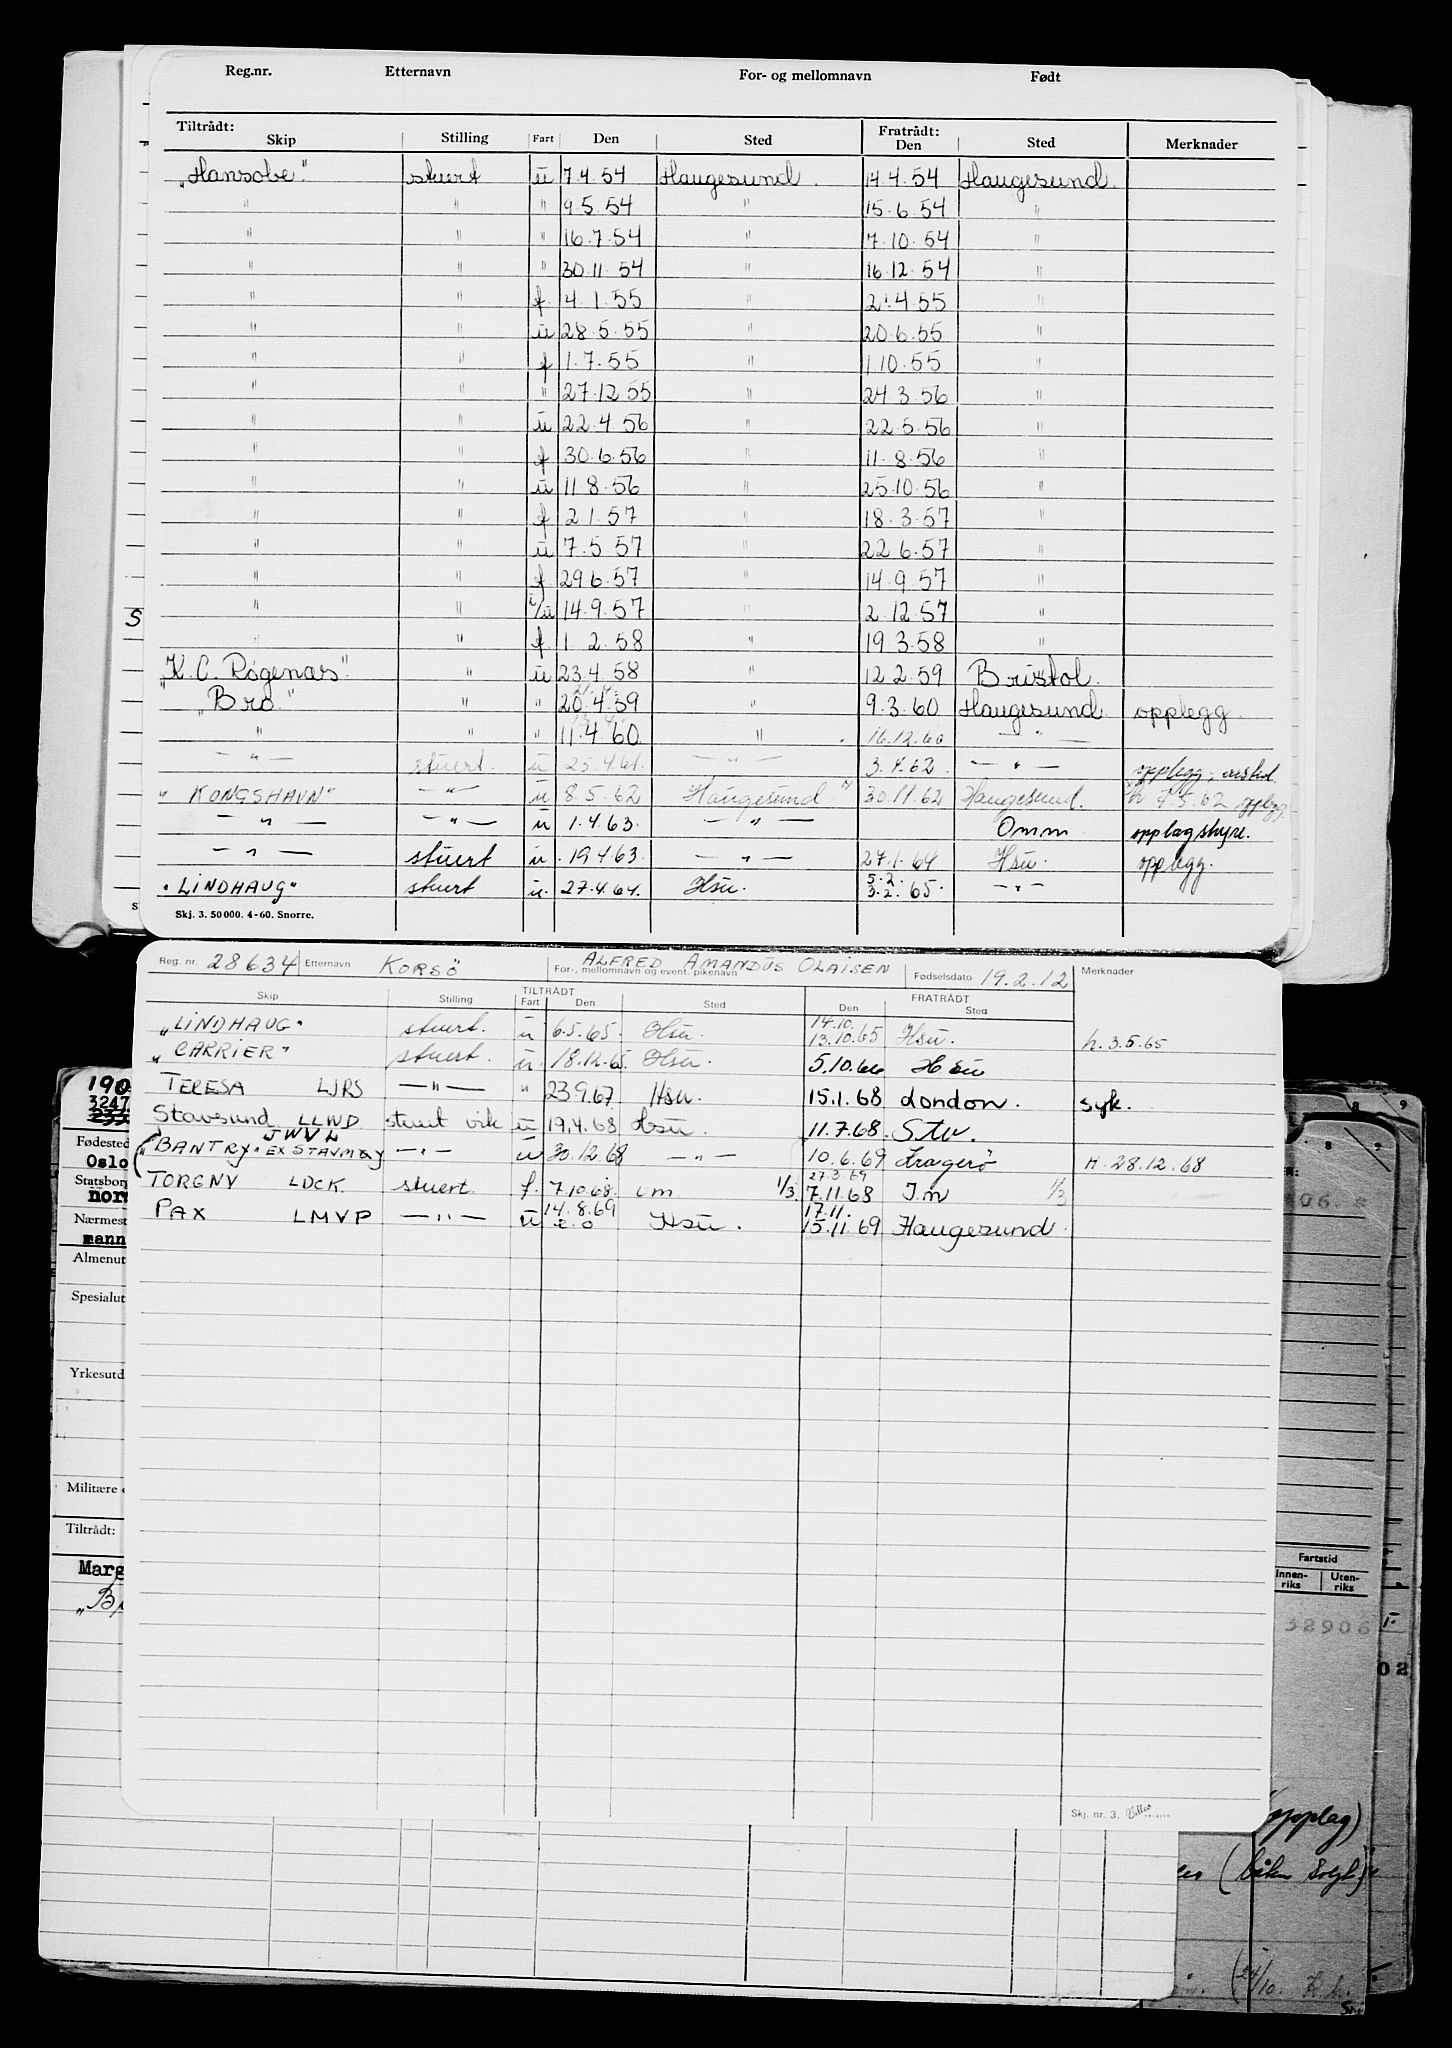 Reg.nr. Etternavn For- og mellomnavn Født
Tiltrådt: Fratrådt:
Skip Stilling Fart Den Sted Den Sted Merknader
"Hansobe" stuert ü 7.4.54 Haugesund. 14.4.54 Haugesund.
" " " 9.5.54 " 15.6.54 "
" " " 16.7.54 " 7.10.54 "
" " " 30.11.54 " 16.12.54 "
" " f. 4.1.55 " 21.4.55 "
" " ü 28.5.55 " 20.6.55 "
" " f 1.7.55 " 1.10.55 "
" " " 27.12.55 " 24.3.56 "
" " ü 22.4.56 " 22.5.56 "
" " f 30.6.56 " 11.8.56 "
" " ü 11.8.56 " 25.10.56 "
" " f 2.1.57 " 18.3.57 "
" " ü 7.5.57 " 22.6.57 "
" " f. 29.6.57 " 14.9.57 "
" " i/ü 14.9.57 " 2.12.57 "
" " f. 1.2.58 " 19.3.58 "
"K.C. Rogenæs" " ü 23.4.58 " 12.2.59 Bristol.
"Bro" " " 20.4.59 " 9.3.60 Haugesund opplegg.
" " " 11.4.60 " 16.12.60 — " —
— " — stuert. ü 25.4.61. — " — 3.4.62. — " — opplegg,
"KONGSHAVN" — " — ü 8.5.62 Haugesund 30.11.62 Haugesund. h 4.5.62 opplegg.
— " — — " — ü 1.4.63. — " — Omm opplagshyre.
S
— " — stuert ü 19.4.63. — " — 27.1.64 Hsu. opplegg.
"LINDHAUG" stuert ü. 27.4.64. Hsu. 5.2. 3.2.65. — " —
Skj. 3. 50 000. 4-60. Snorre.
Reg. nr. 28634 Etternavn KORSÖ For-, mellomnavn og event. pikenavn ALFRED AMANDUS OLAISEN Fødselsdato 19.2.12 Merknader
TILTRÅDT FRATRÅDT
Skip Stilling Fart Den Sted Den Sted
"LINDHAUG" stuert. ü 6.5.65. Hsu. 14.10. 13.10.65 Hsu. h. 3.5.65
"CARRIER" stuert. ü. 18.12.65. Hsu. 5.10.66 Hsu
TERESA LJRS — " — " 23.9.67 Hsu. 15.1.68 London. syk.
Stavsund LLWD stuert vik ü 19.4.68 Hsu. 11.7.68. Stv.
("BANTRY" EX STAVMOY JWVL — " — ü 30.12.68 — " — 10.6.69 Kragerö H. 28.12.68
TORGNY LDCK. stuert. f. 7.10.68. um 1/3. 27.3.69 7.11.68 I.m 1/3
PAX LMVP — " — ü 14.8.69 Hsu. 17.11. 15.11.69 Haugesund.
Skj. nr. 3.
190
3247
Fødested
Oslo
Statsborg
nors
Nærmest
mann
Almenut
Spesialut
Yrkesutd
Militære
Tiltrådt:
Marg
"B
8 9
8 9
06.
Fartstid
Innen-riks Uten-riks
32906
02
opplag)
(24/10.